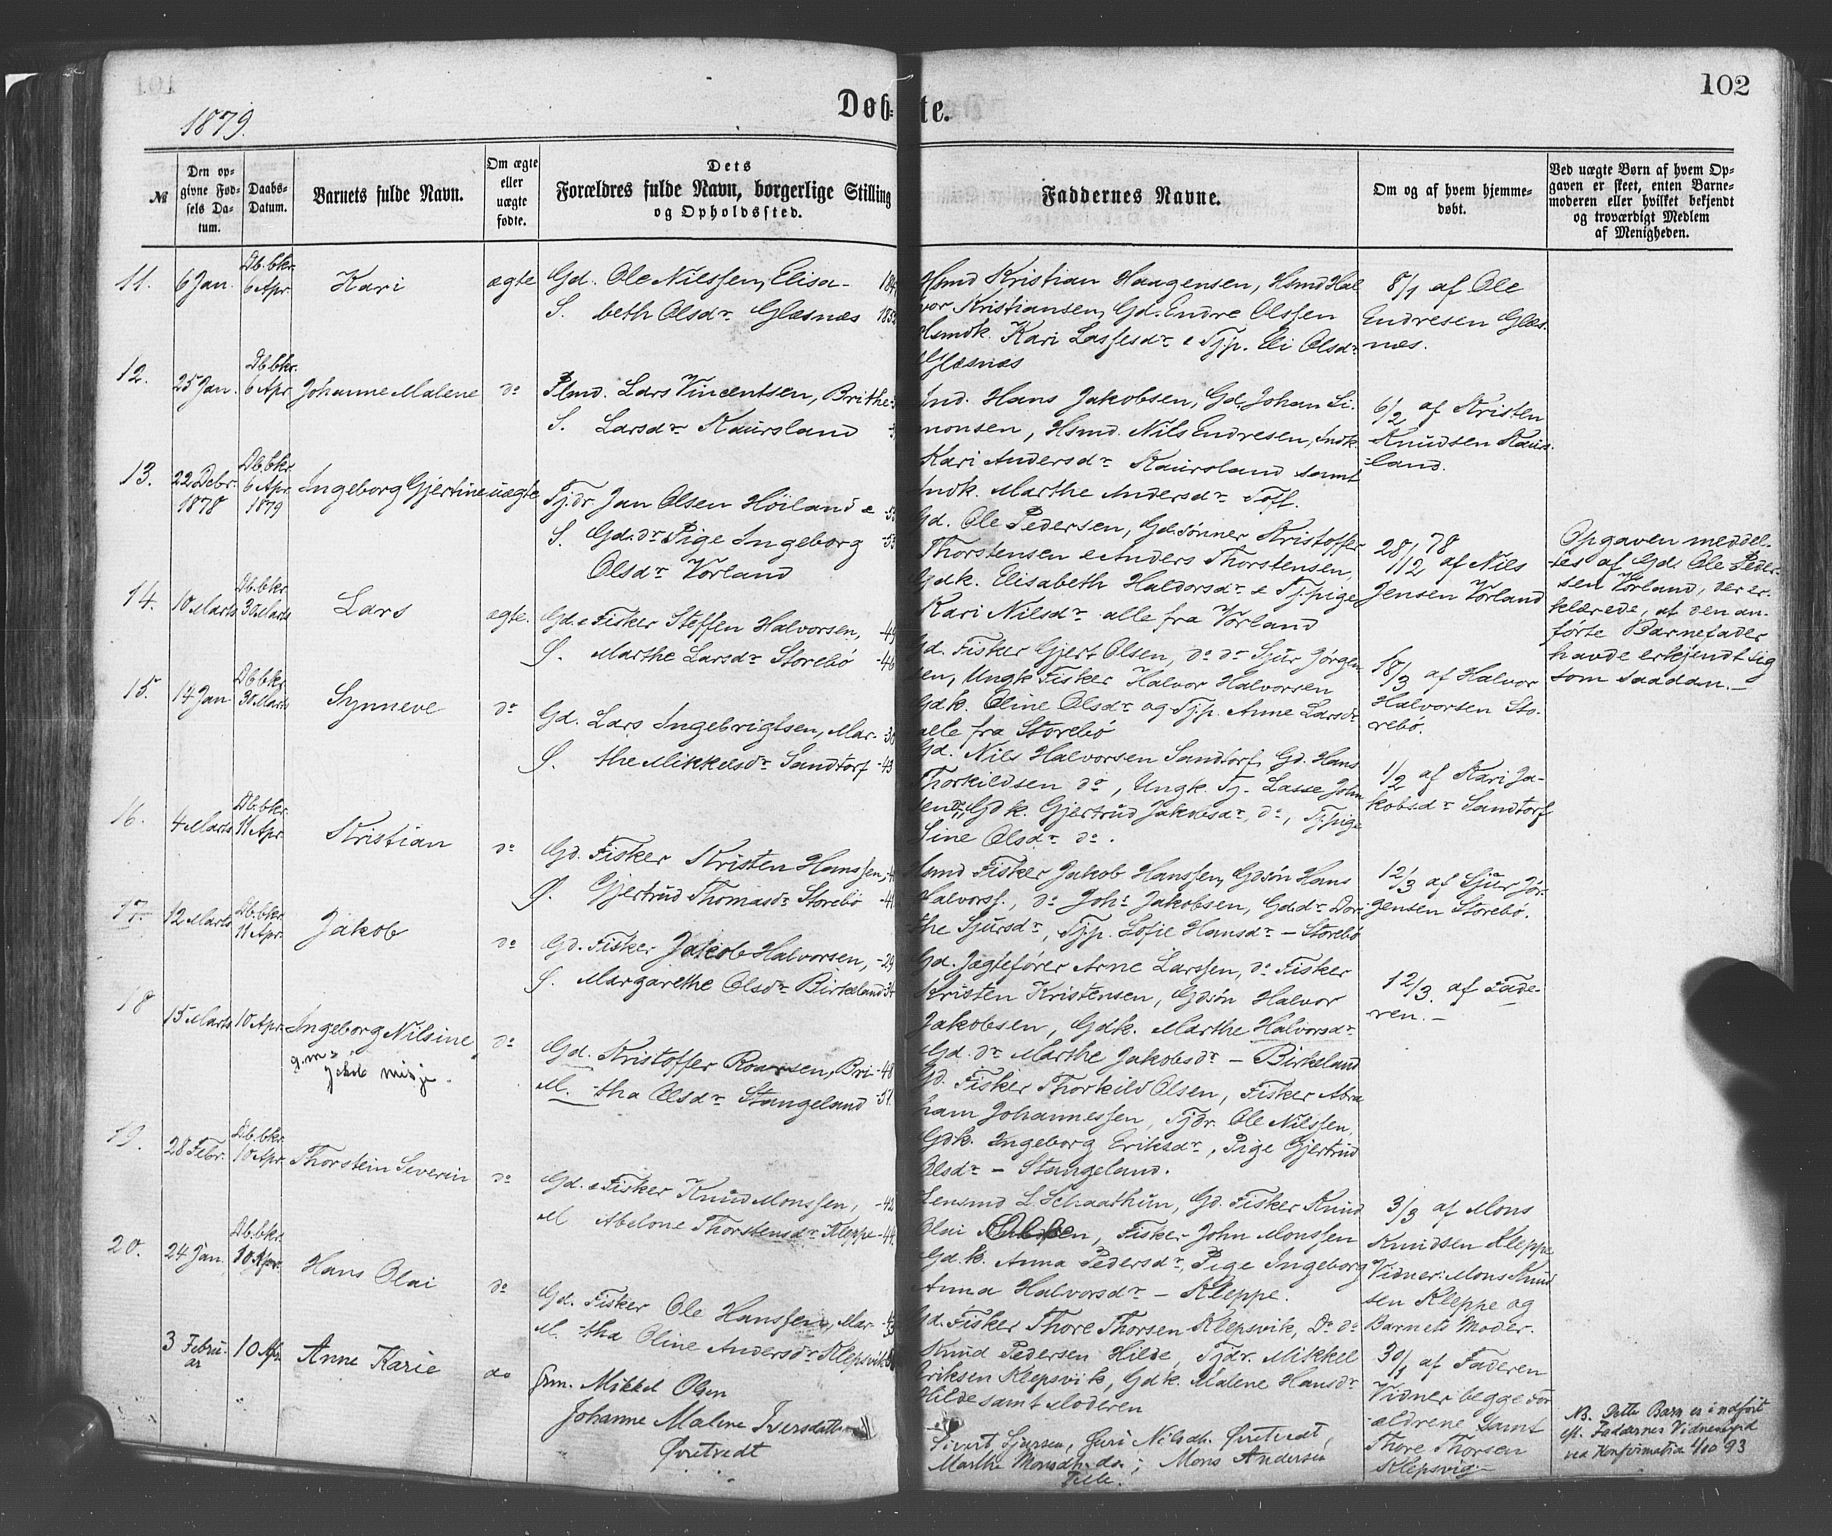 102
1879.
Døb-te.
№
Den opgivne Fødsels Datum.
Daabs-Datum.
Barnets fulde Navn.
Om ægte eller uægte fødte.
Dets Forældres fulde Navn, borgerlige Stilling og Opholdssted.
Faddernes Navne.
Om og af hvem hjemmedøbt.
Ved uægte Børn af hvem Opgaven er skeet, enten Barnemoderen eller hvilket bekjendt og troværdigt Medlem af Menigheden.
11. 6 Jan. Db. bkr. 6 Apr Kari ægte
Gd. Ole Nilssen, Elisa-
S. beth Olsdr Glæsnæs
Hsmd Kristian Haagensen, Hsmd Hal
vor Kristiansen, Gd. Endre Olssen
Hsmdk. Kari Lassesdr & Tjp. Eli Olsdr
Glæsnæs
8/1 af Ole
Endresen Glæs-
næs.
12. 25 Jan. Db. bkr. 6 Apr Johanne Malene do
Plmd. Lars Vincentsen, Brithe
S. Larsdr Kaursland
Ind. Hans Jakobsen, Gd. Johan Si-
monsen, Hsmd. Nils Endresen, Indk.
Kari Andersdr Kaursland samt
Indk. Marthe Andersdr Toft.
6/2 af Kristen
Knudsen Kaurs-
land.
13. 22 Debr. 1878 Db. bkr. 6 Apr. 1879 Ingeborg Gjertine uægte
Tj.dr. Jan Olsen Høiland & -53
S. Gd.dr Pige Ingeborg -53
Olsdr Vorland
Gd. Ole Pedersen, Gd.sønner Kristoffer
Thorstensen & Anders Thorstensen,
Gdk. Elisabeth Haldorsdr & Tj.pige
Kari Nilsdr alle fra Vorland
28/12 78 af Nils
Jensen Vorland
Opgaven meddel-
tes af Gd. Ole Peder-
sen Vorland, der er-
klærede, at den an-
førte Barnefader
havde erkjendt sig
som saadan.—
14. 10 Marts Db. bkr. 30 Marts Lars ægte.
Gd. & Fisker Steffen Halvorsen, -45
Ø. Marthe Larsdr Storebø -46
Gd. Fisker Gjert Olsen, do do Sjur Jørgen
sen, Ungk Fisker Halvor Halvorsen
Gdk. Oline Olsdr og Tj.p. Anne Larsdr
alle fra Storebø
18/3 af Halvor
Halvorsen Sto-
rebø.
15. 14 Jan Db. bkr. 30 Marts Synneve do
Gd. Lars Ingebrigtsen, Mar-
Ø. the Mikkelsdr Sandtorf -43
Gd. Nils Halvorsen Sandtorf, Gd. Hans
Thorkildsen do, Ungk. Tj. Lasse John
sen do, Gdk. Gjertrud Jakobsdr, do, Tj.pige
Sine Olsdr do.
1/2 af Kari Ja-
kobsdr Sandtorf
16. 4 Marts Db. bkr. 11 Apr. Kristian do
Gd. Fisker Kristen Hanssen,
Ø. Gjertrud Thomasdr Storebø
Hsmd Fisker Jakob Hanssen, Gdsøn Hans
Halvors., do Johs Jakobsen, Gd.dr Dor-
the Sjursdr, Tj.p. Sofie Hansdr - Storebø
12/3 af Sjur Jør-
gensen Storebø.
17. 12 Marts Db. bkr. 11 Apr. Jakob do
Gd. Fisker Jakob Halvorsen, -29
Ø. Margarethe Olsdr Birkeland
Gd. Jægtefører Arne Larssen, do Fisker
Kristen Kristensen, Gdsøn Halvor
Jakobsen, Gdk. Marthe Halvorsdr
Gd. dr Marthe Jakobsdr - Birkeland
12/3. af Fade-
ren.—
18 15 Marts 10 Apr. Ingeborg Nilsine do
g.m.
Gd. Kristoffer Roarsen, Bri- -48
M. tha Olsdr Stangeland -51.
Gd. Fisker Thorkild Olsen, Fisker Abra
ham Johannessen, Tjdr. Ole Nilssen.
Gdk. Ingeborg Eriksdr, Pige Gjertrud
Olsdr - Stangeland.
19. 28 Febr. Db. bkr. 10 Apr. Thorstein Severin do
Gd. & Fisker Knud Monssen, -42
M Abelone Thorstensdr Kleppe -44
Lensmd L. Schaathun, Gd. Fisker Knud
Olai Olsen, Fisker John Monssen
Gd.k. Anna Pedersdr, Pige Ingeborg
Anna Halvorsdr - Kleppe.
3/3 af Mons
Knudsen Kleppe
Vidner: Mons Knud
sen Kleppe og
Barnets Moder.
20. 24 Jan. Db. bkr. 10 Apr. Hans Olai do
Gd. Fisker Ole Hanssen, Mar-
M. tha Oline Andersdr Klepsvik
Gd. Fisker Thore Thorsen Klepsvik, Do do
Knud Pedersen Hilde, Tjdr. Mikkel
Eriksen Klepsvik, Gdk. Malene Hansdr
Hilde samt Moderen
30/1 af Faderen
Vidner begge For
ældrene samt
Thore Thorsen
Klepsvig—
3 Februar 10 Apr Anne Karie do
Grm. Mikkel Olsen
Johanne Malene Iversdatter
Øvretvedt
Sivert Sjursen, Guri Nilsdtr. Øvretvedt,
Marthe Monsdtr. do; Mons Andersen
NB. Dette Barn er indført
eft. Faddernes Vidnesbyrd
ved Konfirmation 1/10 93